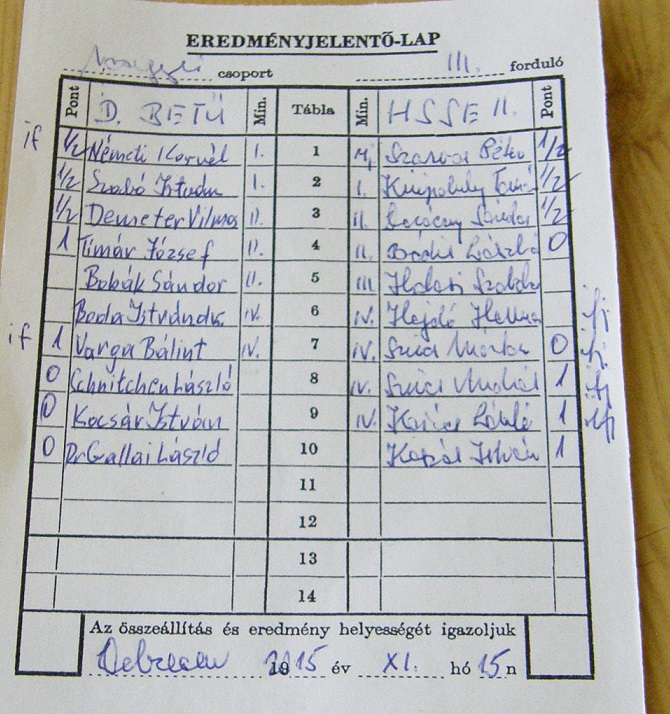 EREDMÉNYJELENTŐ-LAP
csoport III. forduló
Pont D. BETŰ Min. Tábla Min. HSSE II. Pont
if 1/2 Németi Kornél I. 1 Péter 1/2
1/2 Szabó István I. 2 I. 1/2
1/2 Demeter Vilmos II. 3 II. Sándor 1/2
1 Tímár József II. 4 II. László 0
Bobák Sándor II. 5 III
Boda Istvándr. IV. 6 IV. Hajdú ifj
if 1 Varga Bálint IV. 7 IV. Szűcs 0 ifj
0 Schnitchen László 8 IV. Szűcs 1 ifj
0 Kocsár István 9 IV. László 1 ifj
0 Dr Gallai László 10 István 1
11
12
13
14
Az összeállítás és eredmény helyességét igazoljuk
Debrecen 2015 év XI. hó 15 n